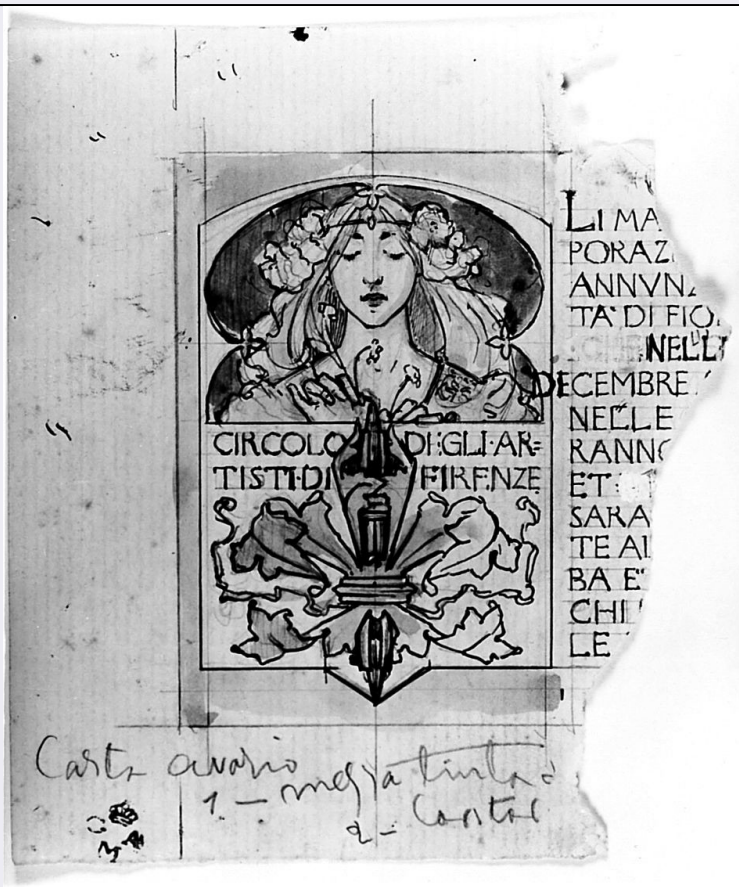 CIRCOLO DEGLI·AR=
TISTI·DI FIRENZE
LI MA
PORAZ
ANNVN
TA' DI FIO
NELL
DECEMBRE
NELLE
RANNO
ET
SARA
TE AL
BA E'
CHI
LE
Carta avorio
1 - mezza tinta
2 -